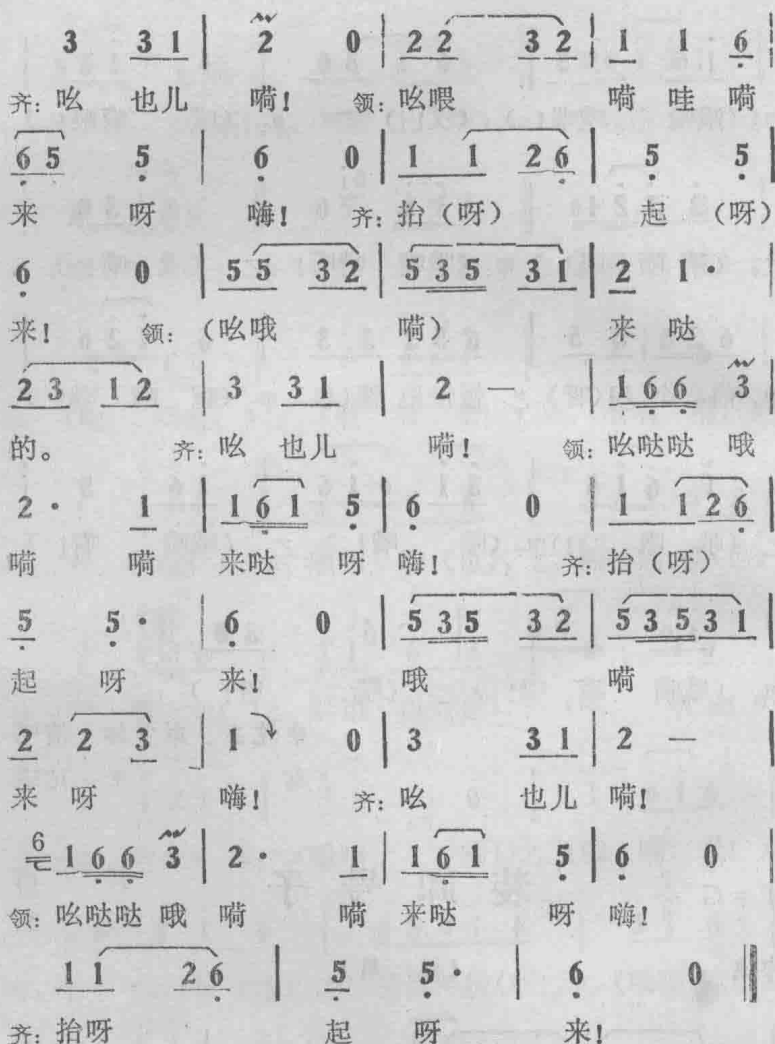 3 31 | 2 0 | 22 32 | 1 1 6
齐: 吆 也儿 嗬! 领: 吆喂 嗬 哇 嗬
65 5 | 6 0 | 1 1 26 | 5 5
来 呀 嗨! 齐: 抬 (呀) 起 (呀)
6 0 | 55 32 | 535 31 | 2 1·
来! 领: (吆哦 嗬) 来 哒
23 12 | 3 31 | 2 — | 166 3
的。 齐: 吆 也儿 嗬! 领: 吆哒哒 哦
2· 1 | 161 5 | 6 0 | 1 126
嗬 嗬 来哒 呀 嗨! 齐: 抬 (呀)
5 5· | 6 0 | 535 32 | 53531
起 呀 来! 哦 嗬
2 2 3 | 1 0 | 3 31 | 2 —
来 呀 嗨! 齐: 吆 也儿 嗬!
6 166 3 | 2· 1 | 161 5 | 6 0
领: 吆哒哒 哦 嗬 嗬 来哒 呀 嗨!
11 26 | 5 5· | 6 0
齐: 抬呀 起 呀 来!